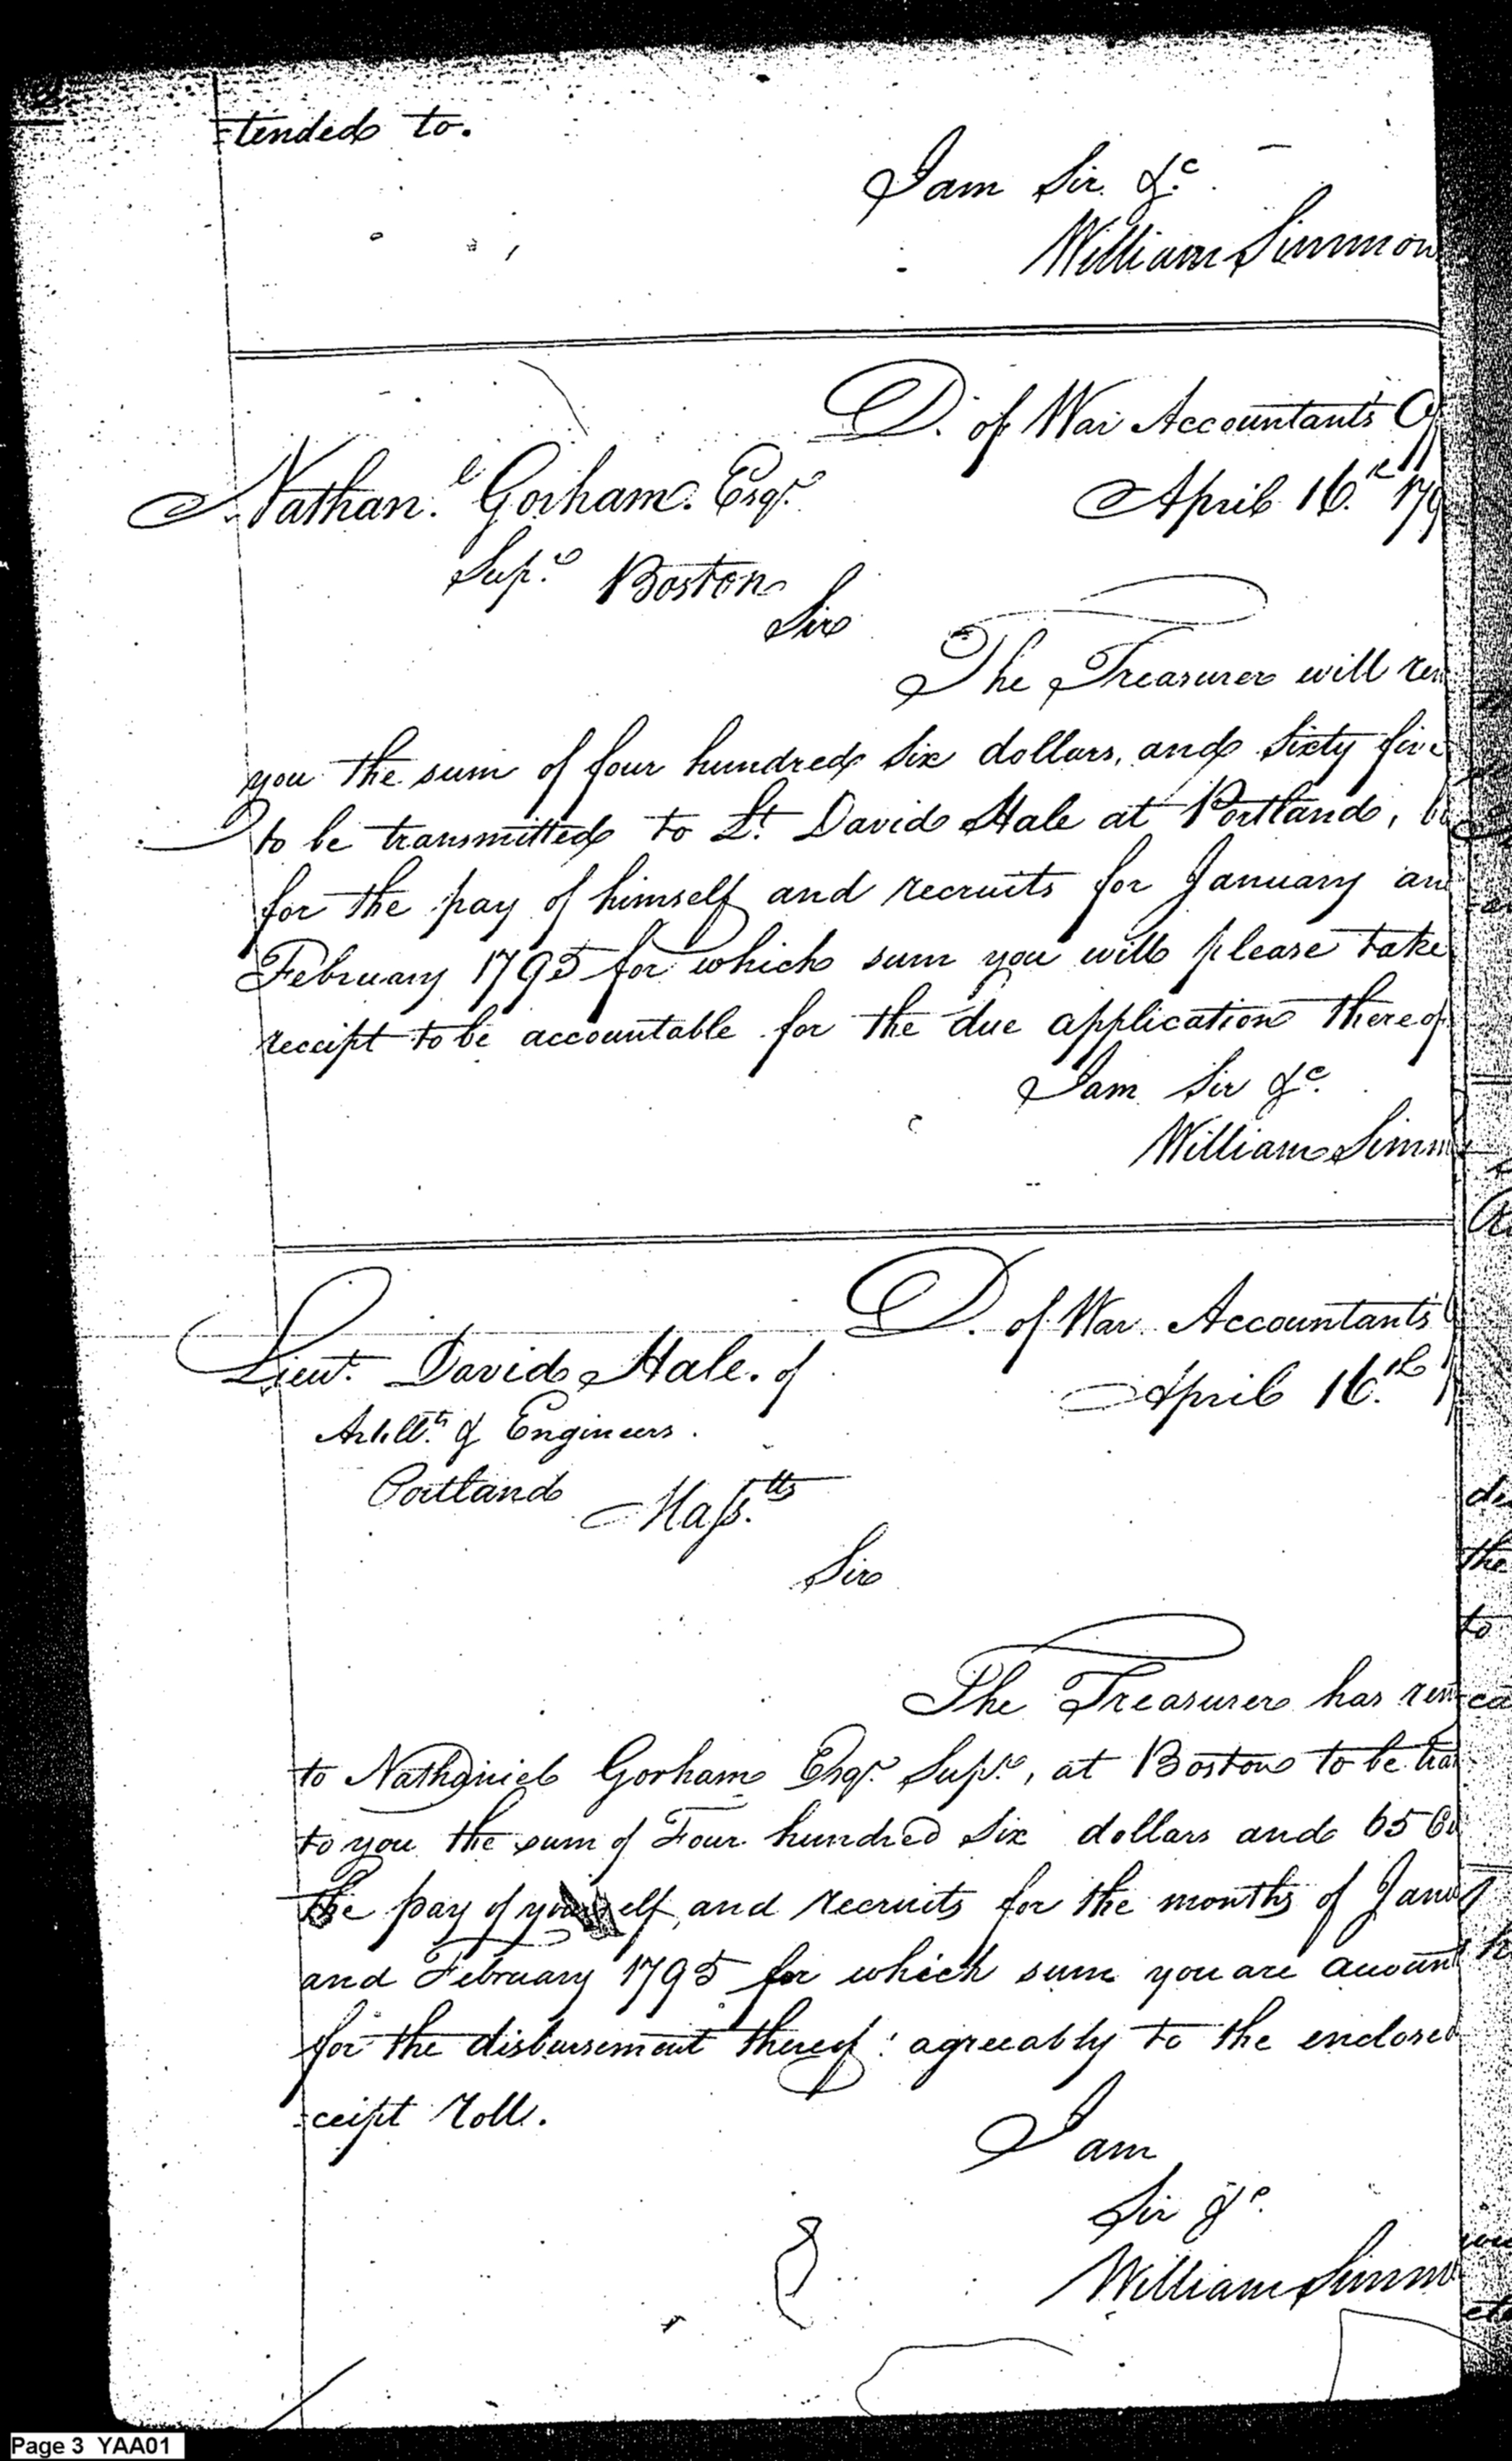 =tended to.
I am Sir &c.
William Simmon
D. of War Accountants O
Nathan.l Gorham. Esqr.
April 16.th 179
Sup.r Boston
Sir
The Treasurer will rem
you the sum of four hundred six dollars, and sixty five
to be transmitted to Lt. David Hale at Portland,
for the pay of himself and recruits for January an
February 1795 for which sum you will please take
receipt to be accountable for the due application thereof
I am Sir &c.
William Simm
D. of War Accountants
Lieut. David Hale. of
April 16.th
Artill.ts & Engineers.
Portland Mass.tts
Sir
The Treasurer has rem
to Nathaniel Gorham Esqr. Sup.r, at Boston to be tra
to you the sum of Four hundred six dollars and 65 Ce
the pay of yourself and recruits for the months of Janu
and February 1795 for which sum you are account
for the disbursement thereof: agreeably to the enclosed
=ceipt Roll.
I am
Sir &c.
William Simm
Page 3 YAA01